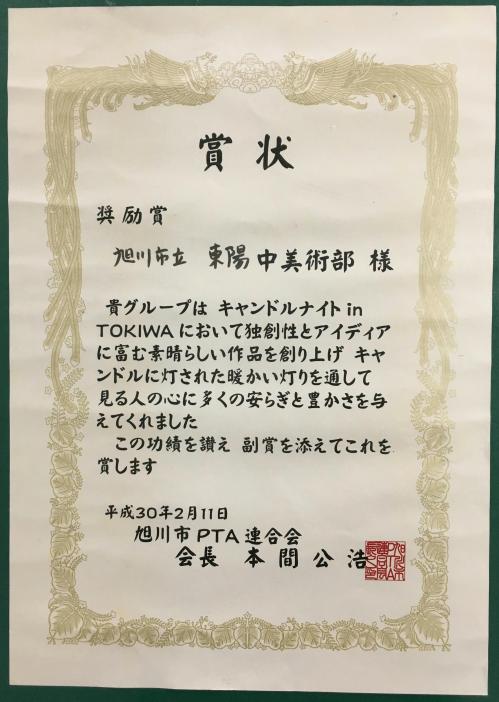 賞状
奨励賞
旭川市立 東陽中美術部 様
貴グループは キャンドルナイト in
TOKIWA において独創性とアイディア
に富む素晴らしい作品を創り上げ キャ
ンドルに灯された暖かい灯りを通して
見る人の心に多くの安らぎと豊かさを与
えてくれました
この功績を讃え 副賞を添えてこれを
賞します
平成30年2月11日
旭川市 PTA 連合会
会長 本間公浩